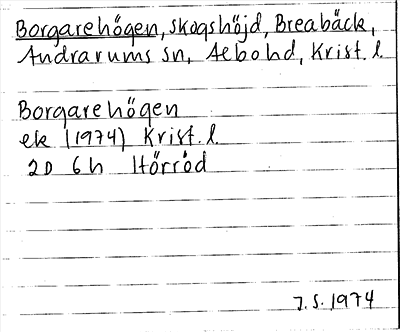 Borgarehögen, skogshöjd, Breabäck,
Andrarums sn, Aebohd, Krist. l.
Borgarehögen
ek (1974) Krist. l.
2D 6h Hörröd
J.S. 1974